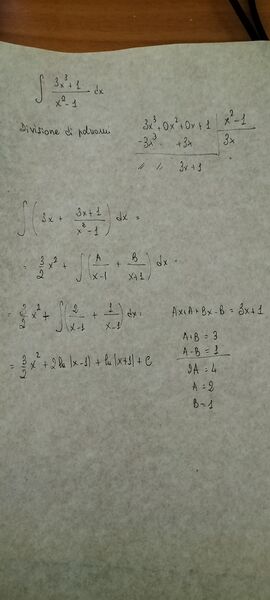 ∫ (3x³+1)/(x²-1) dx
Divisione di polinomi
3x³+0x²+0x+1 | x²-1
-3x³ +3x | 3x
// // 3x+1
∫ (3x + (3x+1)/(x²-1)) dx =
= 3/2 x² + ∫ (A/(x-1) + B/(x+1)) dx =
= 3/2 x² + ∫ (2/(x-1) + 1/(x-1)) dx =
Ax+A+Bx-B = 3x+1
A+B = 3
A-B = 1
2A = 4
A = 2
B = 1
= 3/2 x² + 2 ln |x-1| + ln |x+1| + C